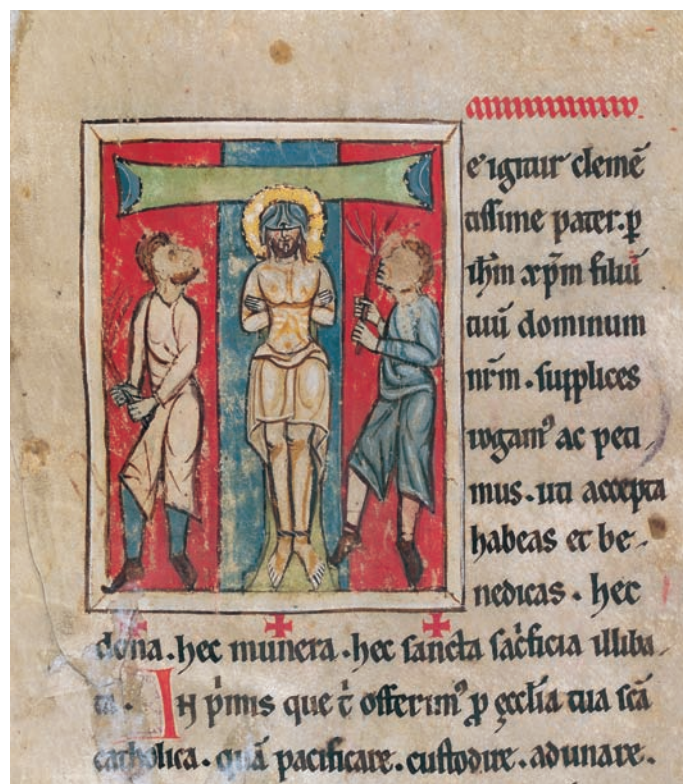 e igitur clemē
tissime pater. p
ih̄m xp̄m filiū
tuū dominum
nr̄m. supplices
rogam᷒ ac peti
mus. uti accepta
habeas et be-
nedicas. hec
dona. hec munera. hec sancta sac̍ficia illiba-
ta. In p̍mis que t̍ offerim᷒ p ęcclīa tua scā
catholica. quā pacificare. custodire. adunare.